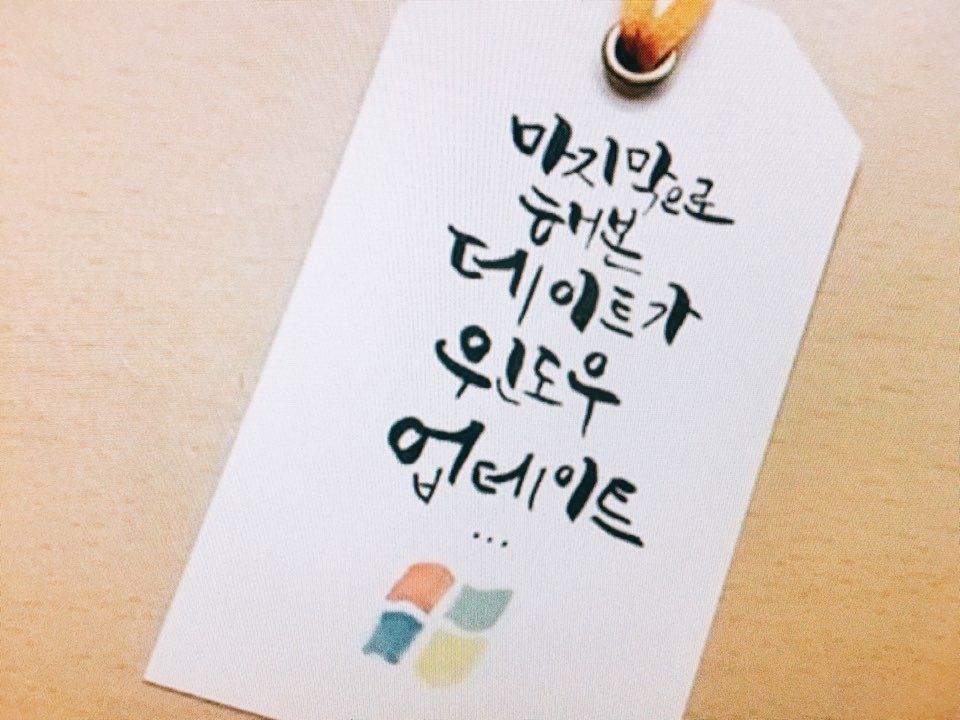 마지막으로
해본
데이트가
윈도우
업데이트
...